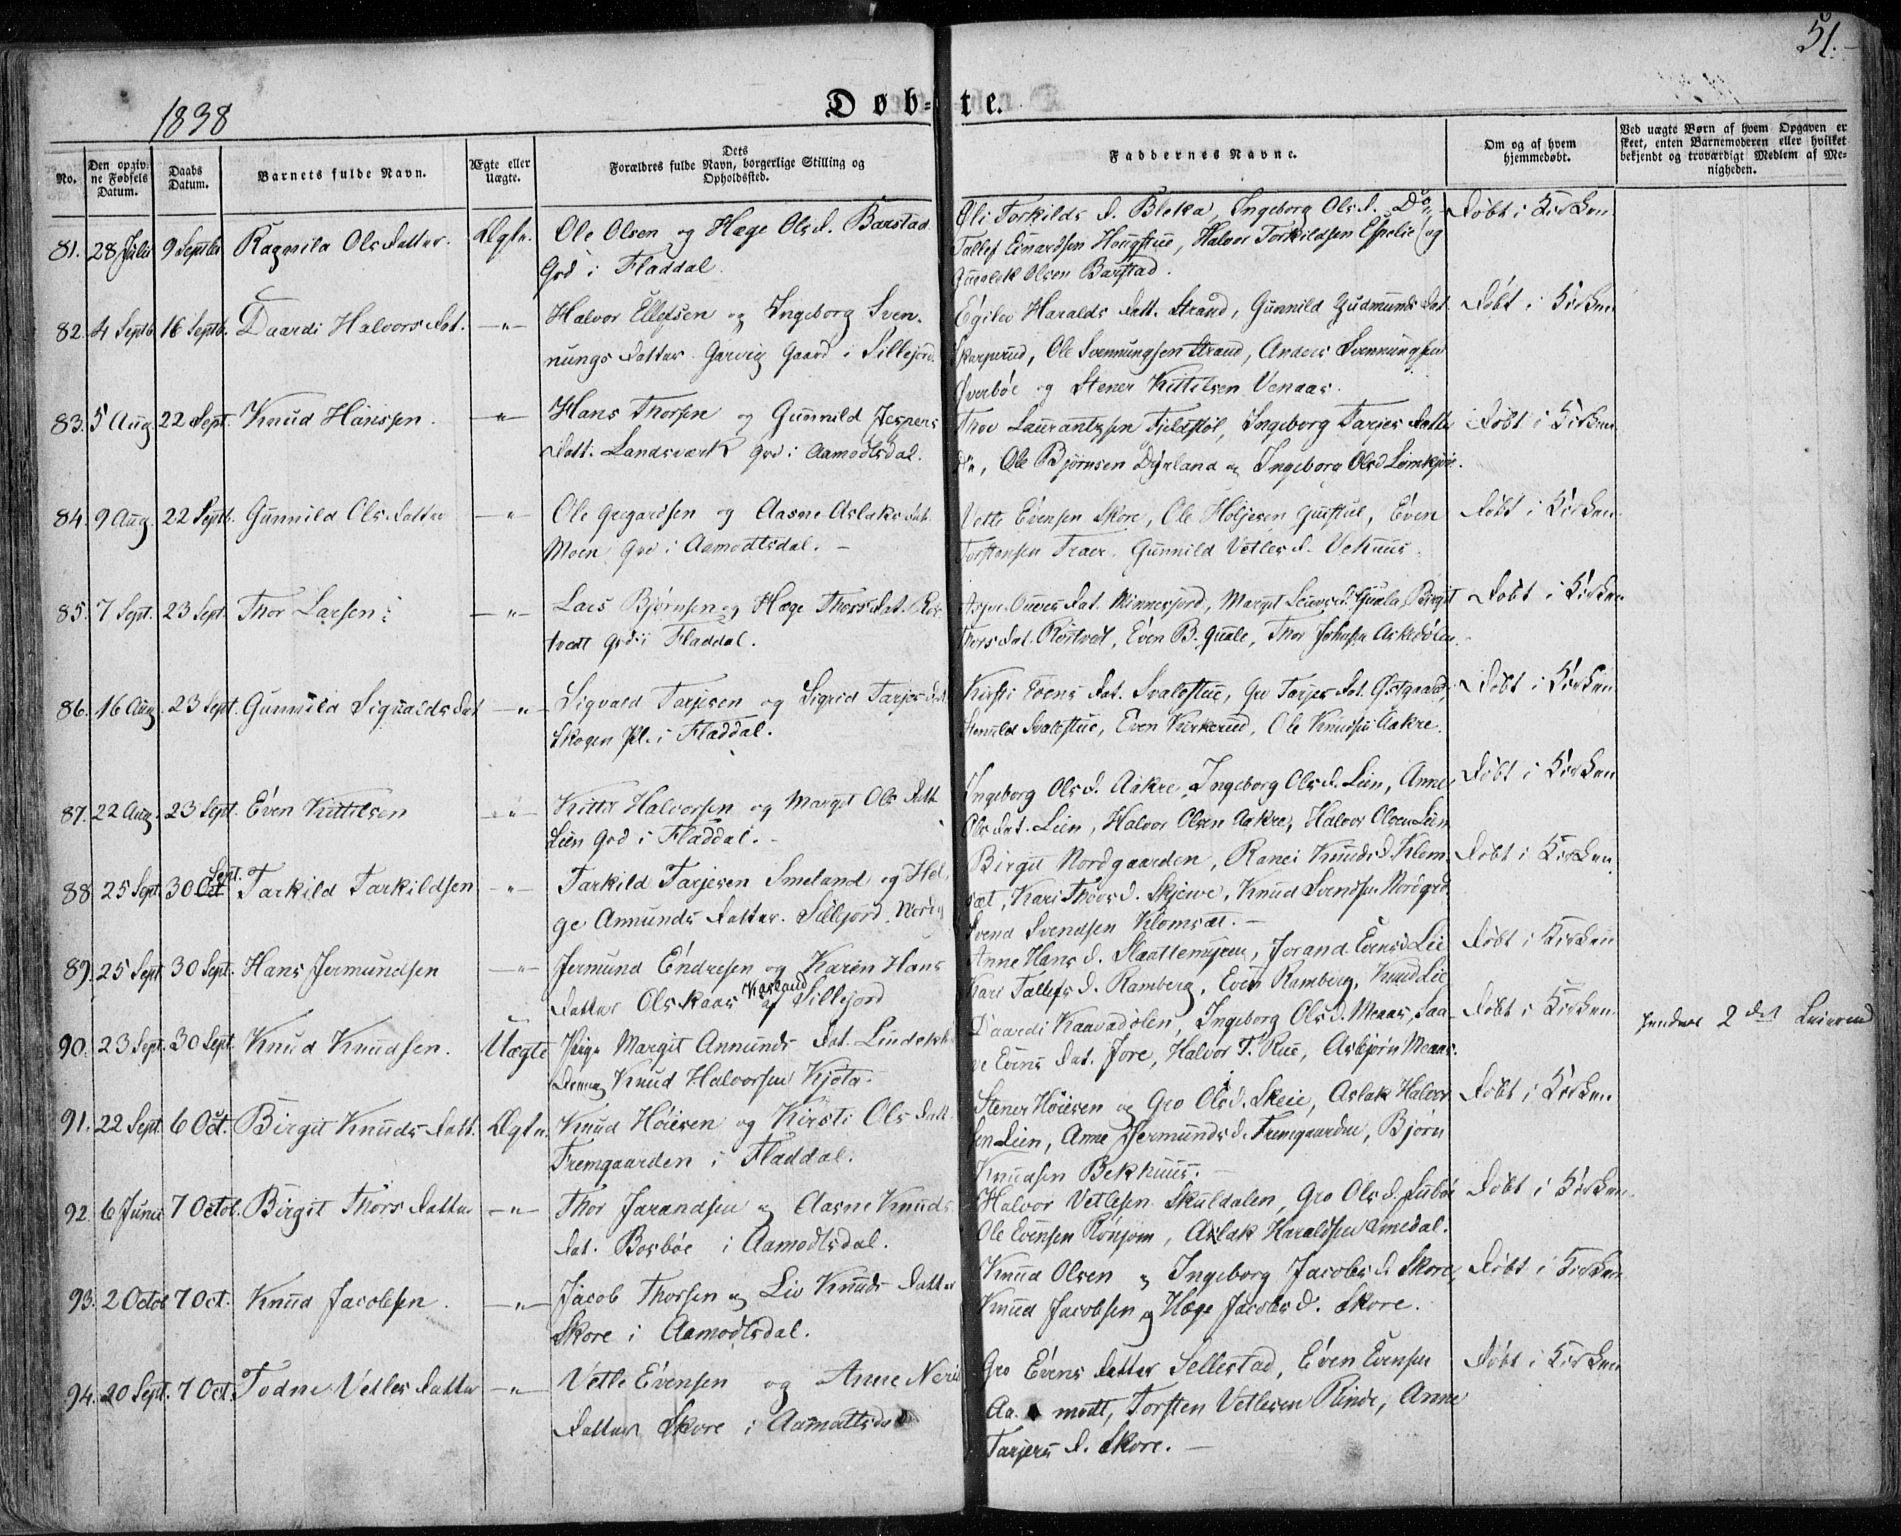 51.
1838
Døbte.
No.
Den opgivne Fødsels Datum.
Daabs Datum.
Barnets fulde Navn.
Ægte eller Uægte.
Dets Forældres fulde Navn, borgerlige Stilling og Opholdssted.
Faddernes Navne.
Om og af hvem hjemmedøbt.
Ved uægte Børn af hvem Opgaven er skeet, enten Barnemoderen eller hvilket bekjendt og troværdigt Medlem af Menigheden.
81. 28 Julii 9 Septbr Ragnild Olsdatter. Ægte.
Ole Olsen og Hæge Olsd. Barstad
Grd i Fladdal.
Torkilds d. Bleka, Ingeborg Olsd. Do,
Tallef Einardsen Haugstue, Halvor Torkildsen Espelie og
Olsen Barstad.
Døbt i Kirken
82. 4 Septb. 16 Septb. Daardi Halvorsdat. -"-
Halvor Ellefsen og Ingeborg Sven-
nungsdatter Garvig Gaard i Sillejord.
Egilev Haralds datt. Strand, Gunnild Gudmundsdat
Skarperud, Ole Svennungsen Strand, Anders Svennungsen
Øverbøe og Stener Kittilsen Venaas.
Døbt i Kirken
83. 5 Aug 22 Sept. Knud Hanssen. -"-
Hans Thorsen og Gunnild Jespers
datt. Landsværk Grd i Aamodtsdal.
Thor Laurantzsen Fjeldstøl, Ingeborg Tarjes datter
Do, Ole Bjørnsen Dyrland og Ingeborg Olsd
Døbt i Kirken
84. 9 Aug. 22 Septb. Gunnild Olsdatter -"-
Ole Gregardsen og Aasne Aslaksdat.
Moen Grd i Aamodtsdal. -
Vetle Evensen Skore, Ole Holjesen, Even
Torstensen Traer. Gunnild Vetlesd. Vehuus.
Døbt i Kirken
85. 7 Sept. 23 Sept. Thor Larsen. -"-
Lars Bjørnsen og Hæge Thorsdat. Ros-
tvedt Grd i Fladdal.
dat. Minnesjord, Margit Gunla, Birgit
Thorsdat. Rostvedt, Even B. Guale, Thor Johnsen Askedølen.
Døbt i Kirken
86. 16 Aug. 23 Sept. Gunnild Sigvaldsdat -"-
Sigvald Tarjesen og Sigrid Tarjesdat
Skogen Pl. i Fladdal.
Kirsti Evens dat. Svalestue, Gro Tarjesdat. Østgaard,
Svalestue, Even Kirkerud, Ole Knudsen Aakre.
Døbt i Kirken
87. 22 Aug. 23 Sept. Even Kittilsen -"-
Kittil Halvorsen og Margit Olsdatt
Lien Grd i Fladdal. -
Ingeborg Olsd. Aakre, Ingeborg Olsd. Lien, Anne
Olsdat. Lien, Halvor Olsen Aakre, Halvor Olsen Lien
Døbt i Kirken
88. 25 Sept. 30 Oct. Sept. Tarkild Tarkildsen -"-
Tarkild Tarjesen Smeland og Hel-
ge Amundsdatter. Sillejord
Birgit Nordgaarden, Ranei Knudsd. Klom-
sæt, Kari Thorsd. Skjeve, Knud Svendsen Nordgrd.
Svend Svendsen Klomsæt. -
Døbt i Kirken
89. 25 Sept 30 Sept. Hans Jermundsen -"-
Jermund Endresen og Karen Hans
datter Olskaas af Sillejord
Anne Hansd. Slaattemyren, Jorand Evensd Lie
Kari Tallefsd. Ramberg, Even Ramberg, Knud Lie
Døbt i Kirken
90. 23 Sept. 30 Sept. Knud Knudsen. Uægte
Pige Margit Annunds dat.
Dreng Knud Halvorsen Kjøta.
Daardi Kaavadølen, Ingeborg Olsd. Meaas, Saa-
ve Evens dat. Jore, Halvor T. Rue, Asbjørn Meaas.
Døbt i Kirken
hendes 2den Leiermd
91. 22 Sept. 6 Oct. Birgit Knudsdatt. Ægte.
Knud Høiesen og Kirsti Olsdatt
Fremgaarden i Fladdal.
Stener Høiesen og Gro Olsd. Skeie, Aslak Halvor-
sen Lien, Anne Jermundsd. Fremgaarden, Bjørn
Knudsen Bekhuus. -
Døbt i Kirken
92. 6 Junii 7 Octob. Birgit Thorsdatter -"-
Thor Jarandsen og Aasne Knuds
dat. Bosbøe i Aamodtsdal.
Halvor Vetlesen Skuldalen, Gro Olsd.
Ole Evensen Rønjom, Aslak Haraldsen Amedal.
Døbt i Kirken
93. 2 Octob 7 Oct. Knud Jacobsen. -"-
Jacob Thorsen og Liv Knudsdatter
Skore i Aamodtsdal.
Knud Olsen og Ingeborg Jacobsd. Skore,
Knud Jacobsen og Hæge Jacobsd. Skore.
Døbt i Kirken
94. 20 Sept. 7 Oct. Todne Vetlesdatter -"-
Vetle Evensen og Anne Neri
datter Skore i Aamodtsdal
Gro Evens datter Sellestad, Even Evensen
Aamodt, Torsten Vetlesen Rinde, Anne
Tarjersd. Skore. -
Døbt i Kirken